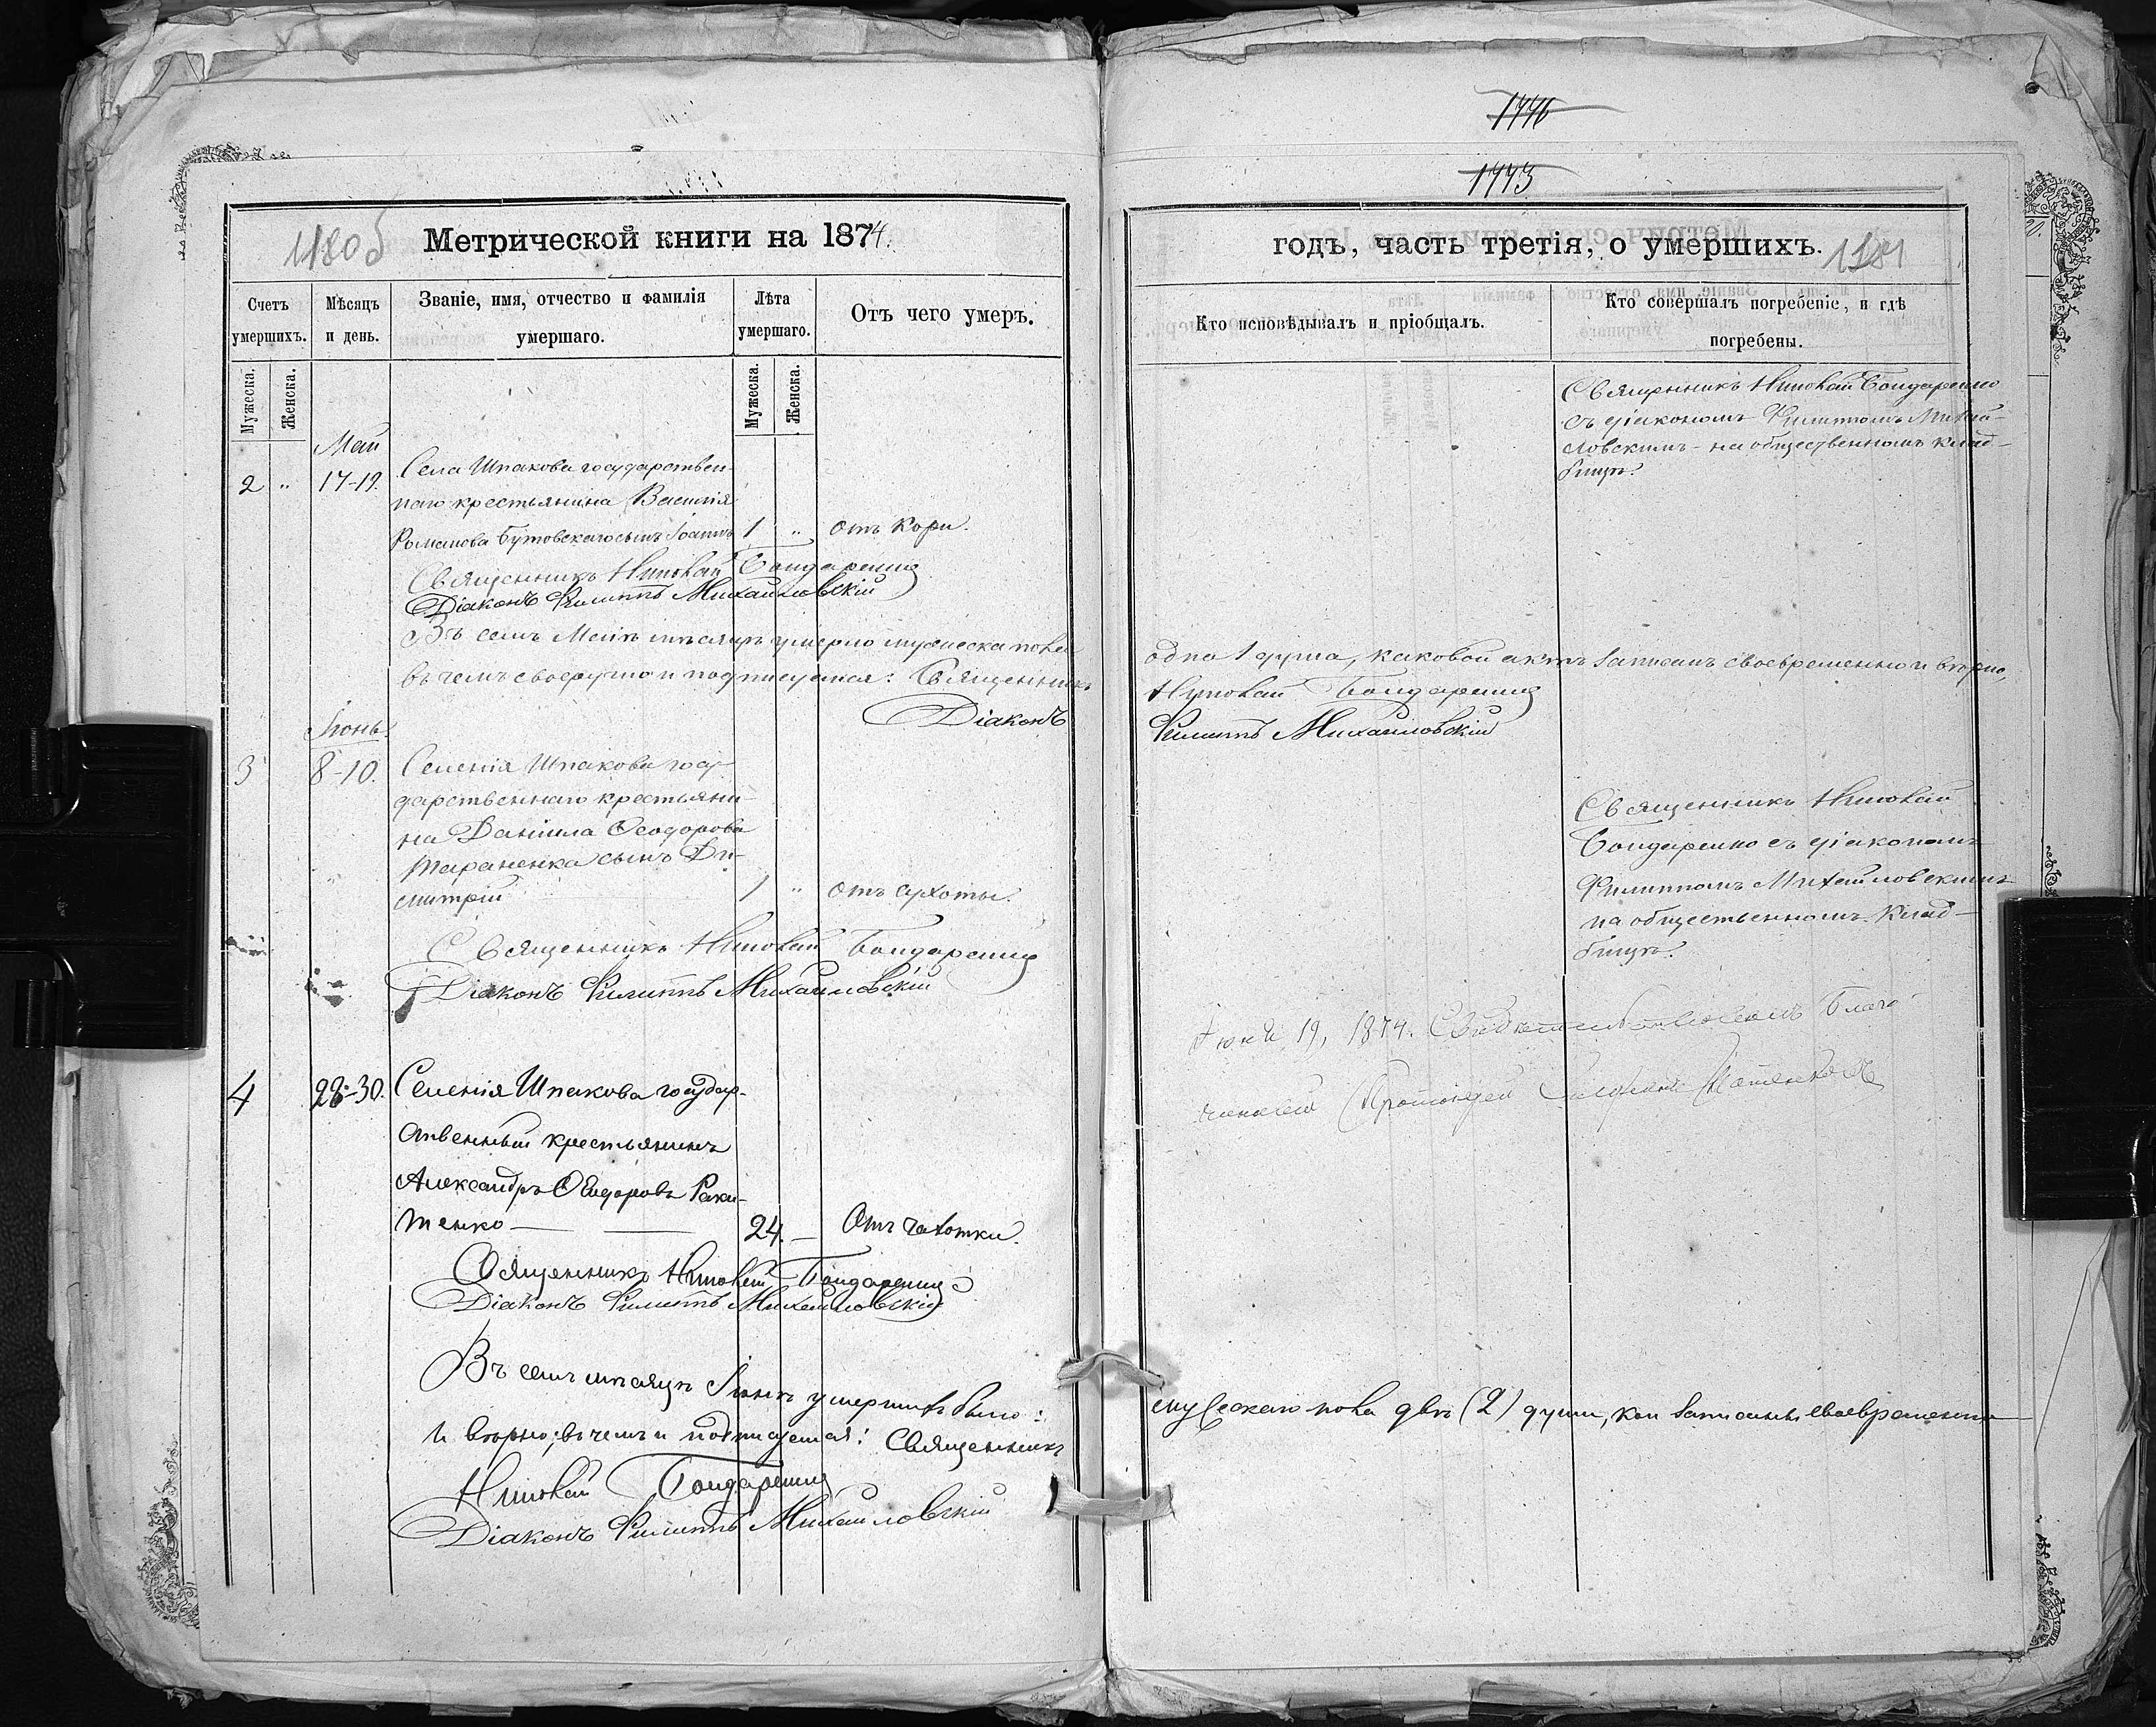 1180об
Метрической книги на 1874.
Счетъ умершихъ.
Мѣсяцъ и день.
Званіе, имя, отчество и фамилія умершаго.
Лѣта умершаго.
Отъ чего умеръ.
Мужеска.
Женска.
Мужеска.
Женска.
Май
2 „ 17-19. Села Шпакова государствен-
наго крестьянина Василія
Романова Бутовскаго сынъ Іоаннъ 1 „ отъ кори.
Священникъ Николай Бондаренко
Діаконъ Филиппъ Михайловскій
Въ семъ Маѣ мѣсяцѣ умерло мужеска пола
въ чемъ своеручно и подписуемся: Священникъ
Діаконъ
Іюнь
3 8-10. Селенія Шпакова госу-
дарственнаго крестьяни-
на Даніила Ѳеодорова
Тараненка сынъ Ди-
митрій 1 „ отъ сухоты.
Священникъ Николай Бондаренко
Діаконъ Филиппъ Михайловскій
4 28-30. Селенія Шпакова государ-
ственный крестьянинъ
Александръ Ѳеодоровъ Раки-
тенко — — 24. — Отъ чахотки.
Священникъ Николай Бондаренко
Діаконъ Филиппъ Михайловскій
Въ семъ мѣсяцѣ Іюнѣ умершихъ было:
и вѣрно; въ чемъ и подписуемся: Священникъ
Николай Бондаренко
Діаконъ Филиппъ Михайловскій
1776
1773
годъ, часть третія, о умершихъ. 1181
Кто исповѣдывалъ и пріобщалъ.
Кто совершалъ погребеніе, и гдѣ погребены.
Священникъ Николай Бондаренко
съ діакономъ Филиппомъ Михай-
ловскимъ - на общественномъ клад-
бищѣ.
одна 1 душа, каковой актъ записанъ своевременно и вѣрно,
Николай Бондаренко
Филиппъ Михайловскій
Священникъ Николай
Бондаренко съ діакономъ
Филиппомъ Михайловскимъ
на общественномъ клад-
бищѣ.
Іюня 19, 1874. Свидѣтельствовалъ Благо-
чинный Протоіерей
мужескаго пола двѣ (2) души, кои записаны своевременно